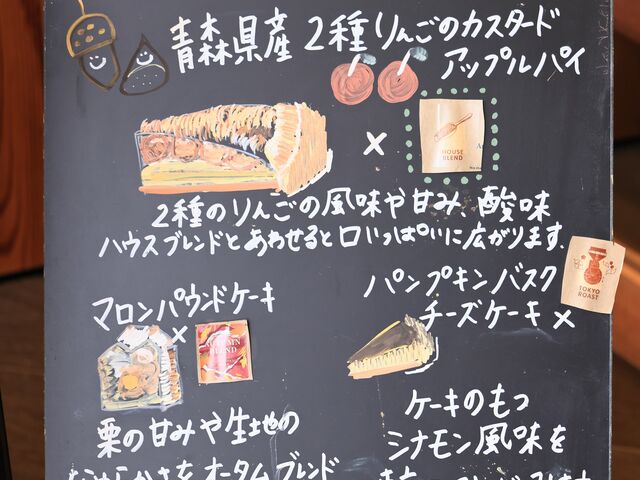 青森県産 2種りんごのカスタード
アップルパイ
×
HOUSE
BLEND
2種のりんごの風味や甘み、酸味
ハウスブレンドとあわせると口いっぱいに広がります。
マロンパウンドケーキ
×
AUTUMN
BLEND
パンプキンバスク
チーズケーキ ×
TOKYO
ROAST
栗の甘みや生地の
なめらかさを オータムブレンド
ケーキのもつ
シナモン風味を